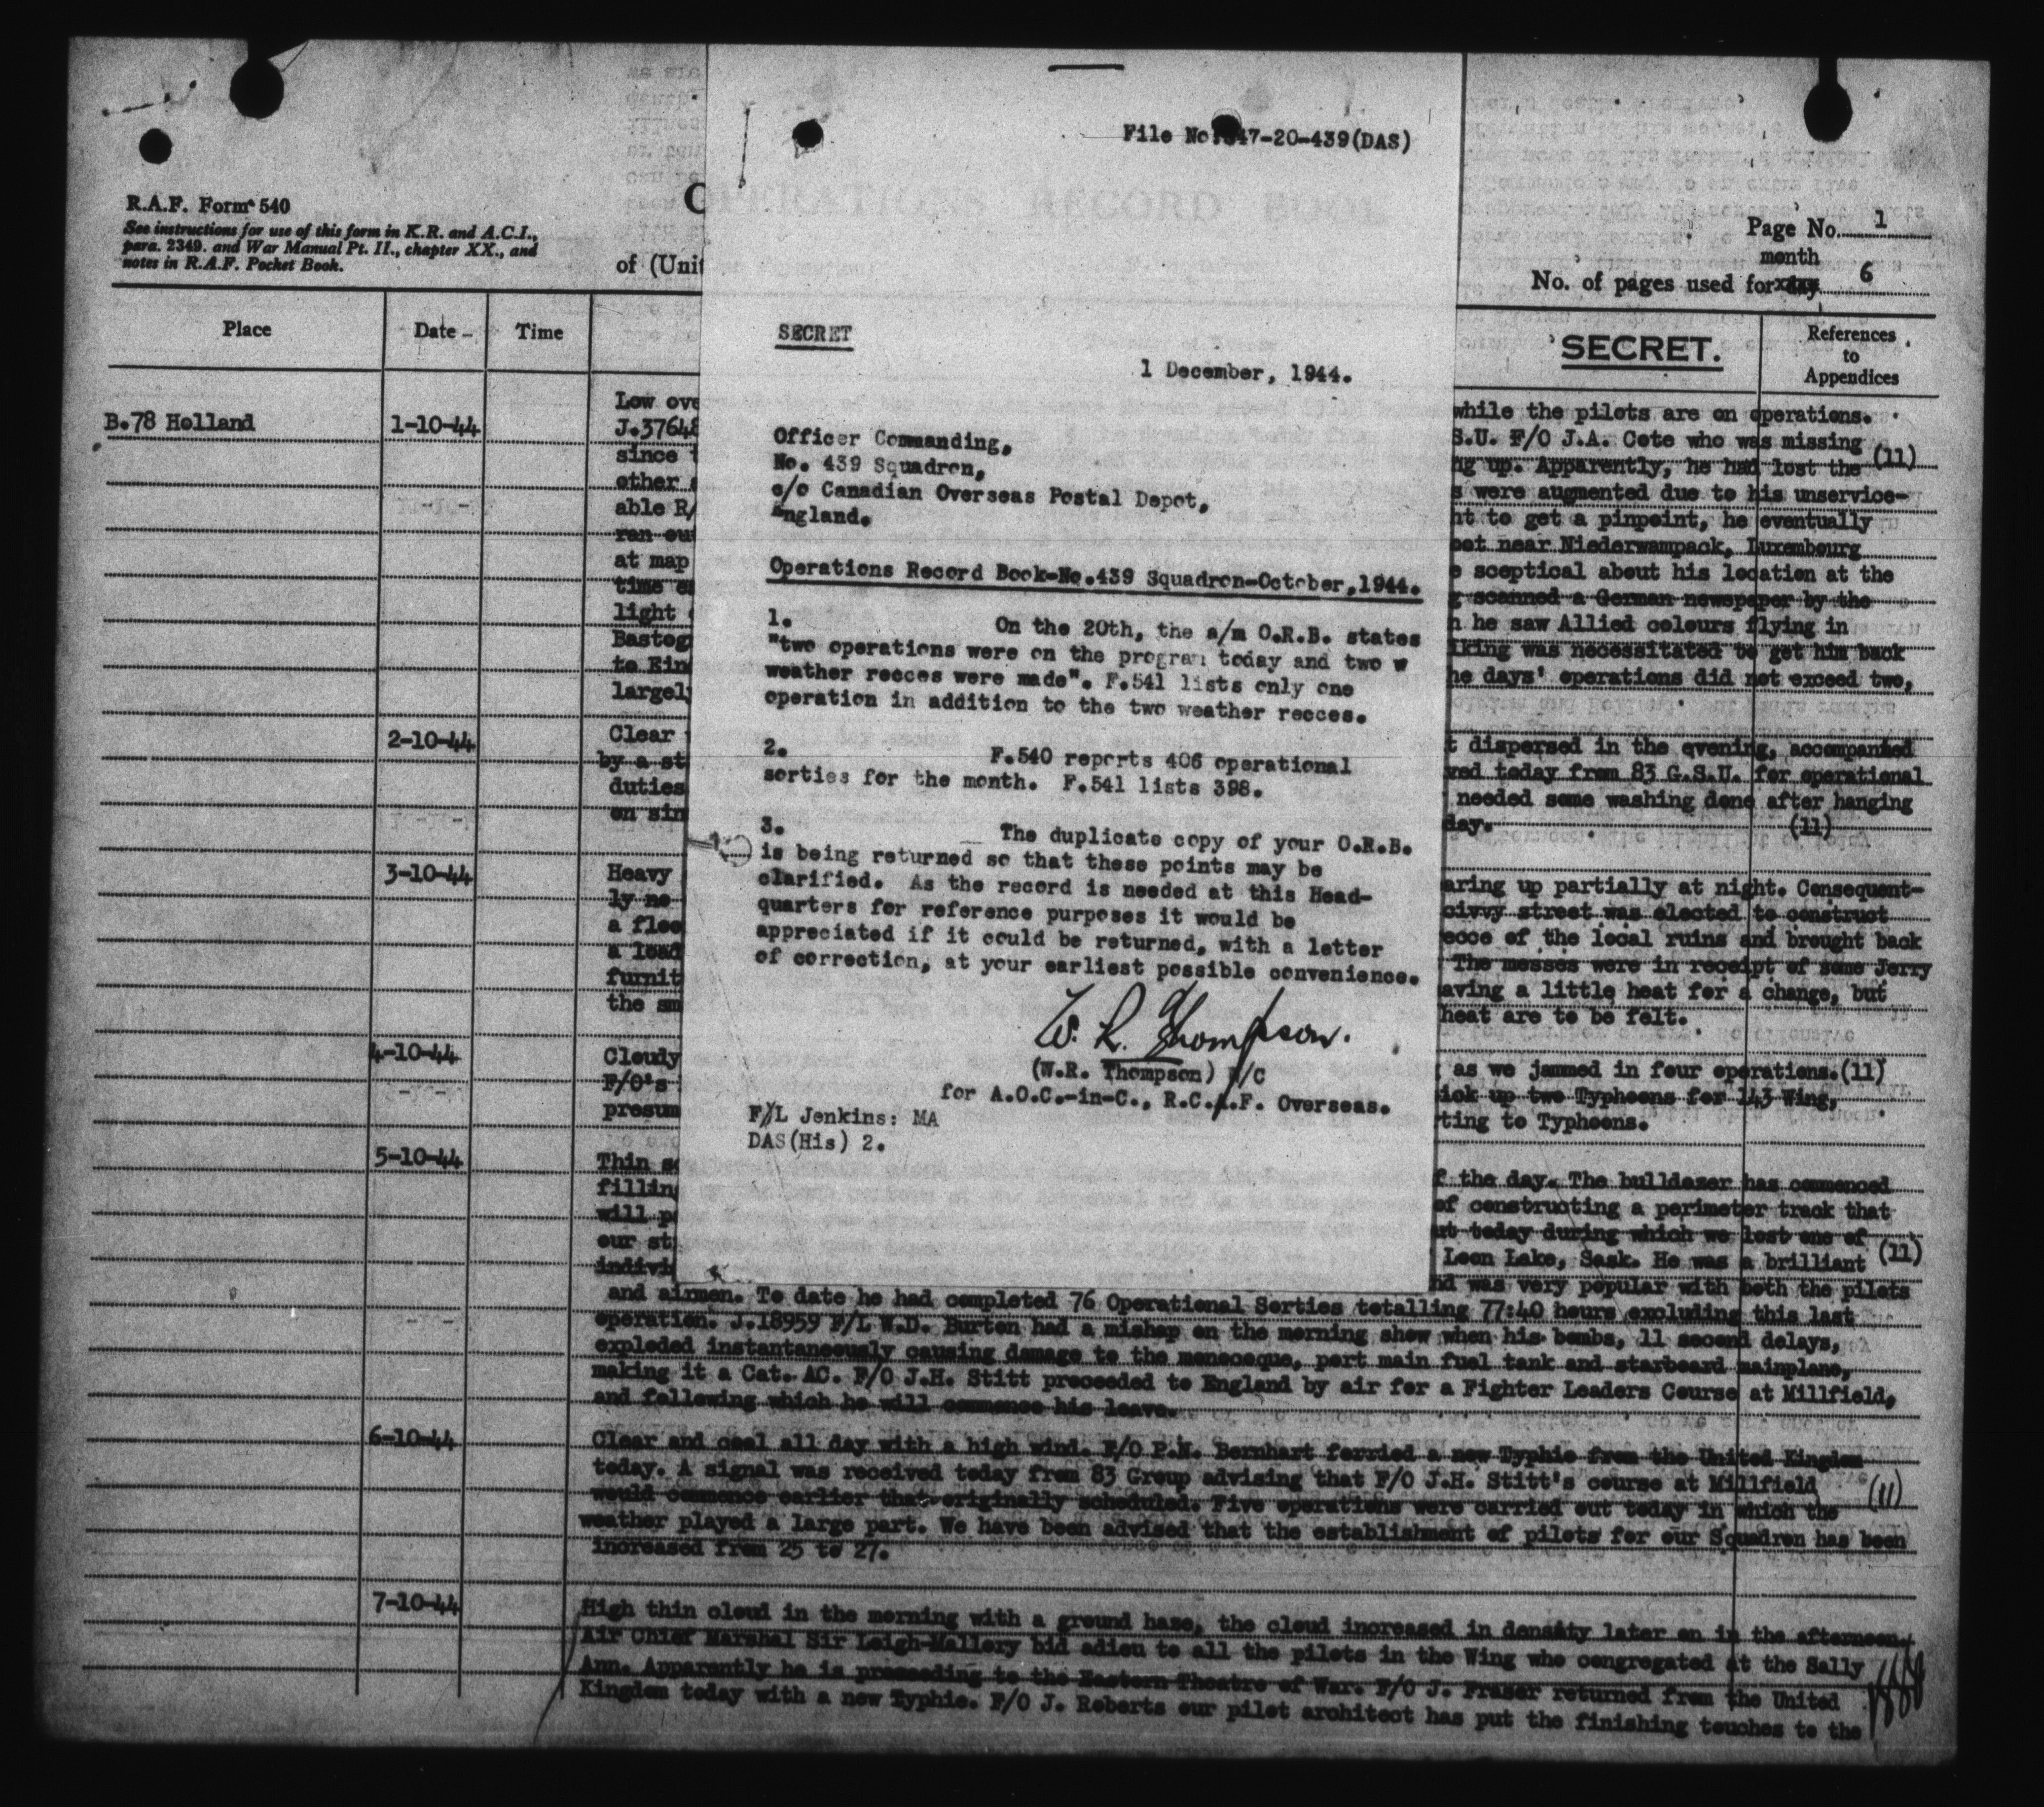 File No. 47-20-439(DAS)
R.A.F. Form 540
See instructions for use of this form in K.R. and A.C.I.,
para. 2349. and War Manual Pt. II., chapter XX., and
notes in R.A.F. Pocket Book.
OPERATIONS RECORD BOOK
of (Unit
Page No. 1
month
No. of pages used for day 6
Place Date Time
SECRET.
References
to
Appendices
SECRET
1 December, 1944.
Officer Commanding,
No. 439 Squadron,
c/o Canadian Overseas Postal Depot,
England.
Operations Record Book-No.439 Squadron-October,1944.
1. On the 20th, the a/m O.R.B. states
"two operations were on the program today and two w
weather recces were made". F.541 lists only one
operation in addition to the two weather recces.
2. F.540 reports 406 operational
sorties for the month. F.541 lists 398.
3. The duplicate copy of your O.R.B.
is being returned so that these points may be
clarified. As the record is needed at this Head-
quarters for reference purposes it would be
appreciated if it could be returned, with a letter
of correction, at your earliest possible convenience.
W. R. Thompson.
(W.R. Thompson) /C
for A.O.C.-in-C., R.C.A.F. Overseas.
F/L Jenkins: MA
DAS(His) 2.
B.78 Holland 1-10-44
Low ove while the pilots are on operations.
J.37648 S.U. F/O J.A. Cote who was missing
since ng up. Apparently, he had lost the (11)
other s were augmented due to his unservice-
able R/ ht to get a pinpoint, he eventually
ran ou eet near Niederwampack, Luxembourg
at map e sceptical about his location at the
time g scanned a German newspaper by the
light n he saw Allied colours flying in
Bastog lking was necessitated to get him back
to Ein he days' operations did not exceed two,
largely
2-10-44
Clear t dispersed in the evening, accompanied
by a st ved today from 83 G.S.U. for operational
duties needed some washing done after hanging
on sin day. (11)
3-10-44
Heavy aring up partially at night. Consequent-
ly no civvy street was elected to construct
a floo ecce of the local ruins and brought back
a load The messes were in receipt of some Jerry
furnit aving a little heat for a change, but
the sm heat are to be felt.
4-10-44
Cloudy as we jammed in four operations.(11)
F/O's ick up two Typhoons for 143 Wing,
presum rting to Typhoons.
5-10-44
Thin sc f the day. The bulldozer has commenced
filling of constructing a perimeter track that
will p ut today during which we lost one of
our st Leon Lake, Sask. He was a brilliant (11)
indivi nd was very popular with both the pilots
and airmen. To date he had completed 76 Operational Sorties totalling 77:40 hours excluding this last
operation. J.18959 F/L W.D. Burton had a mishap on the morning show when his bombs, 11 second delays,
exploded instantaneously causing damage to the monocoque, port main fuel tank and starboard mainplane,
making it a Cat. AC. F/O J.H. Stitt proceeded to England by air for a Fighter Leaders Course at Millfield,
and following which he will commence his leave.
6-10-44
Clear and cool all day with a high wind. F/O P.N. Bernhart ferried a new Typhie from the United Kingdom
today. A signal was received today from 83 Group advising that F/O J.H. Stitt's course at Millfield
would commence earlier that originally scheduled. Five operations were carried out today in which the (11)
weather played a large part. We have been advised that the establishment of pilots for our Squadron has been
increased from 25 to 27.
7-10-44
High thin cloud in the morning with a ground haze, the cloud increased in density later on in the afternoon.
Air Chief Marshal Sir Leigh-Mallory bid adieu to all the pilots in the Wing who congregated at the Sally
Ann. Apparently he is proceeding to the Eastern Theatre of War. F/O J. Fraser returned from the United
Kingdom today with a new Typhie. F/O J. Roberts our pilot architect has put the finishing touches to the